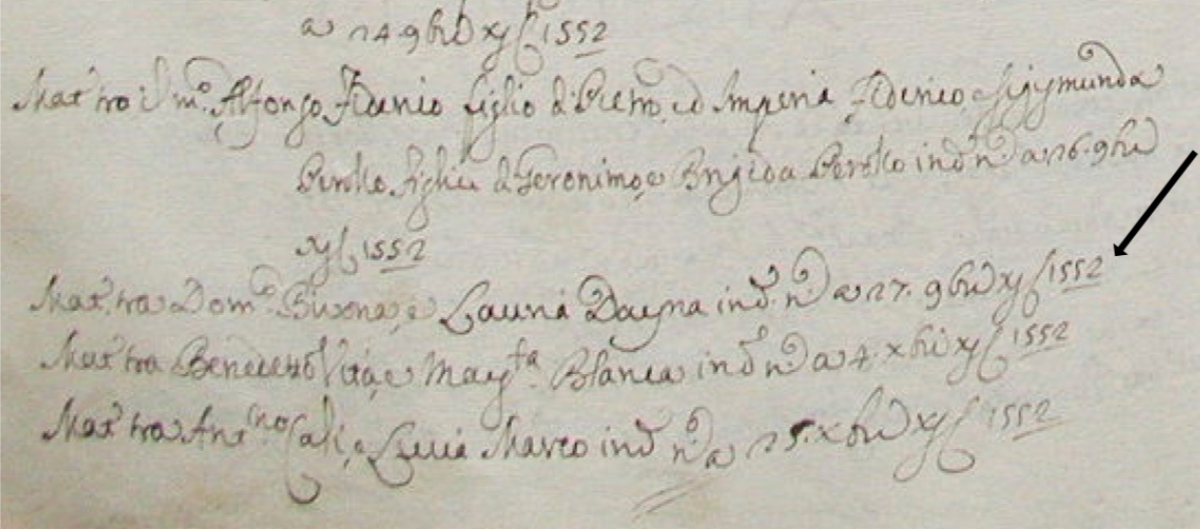 a 14 9bre xj 1552
Mat.o tra il m.o Alfonso Idonio figlio di Pietro, ed Imperia Idonio, e Sigismunda
figlia di Geronimo, e Brigida in di n.ro a 16. 9bre
xj 1552
Mat.o tra Dom.co Bivona, e Lauria Dayna in di n.ro a 17. 9bre xj 1552
Mat.o tra Benedetto Vita, e Marg.ta Blanca in di n.ro a 4. xbre xj 1552
Mat.o tra Ant.no Cali, e Lucia Marco in di n.ro a 15. xbre xj 1552